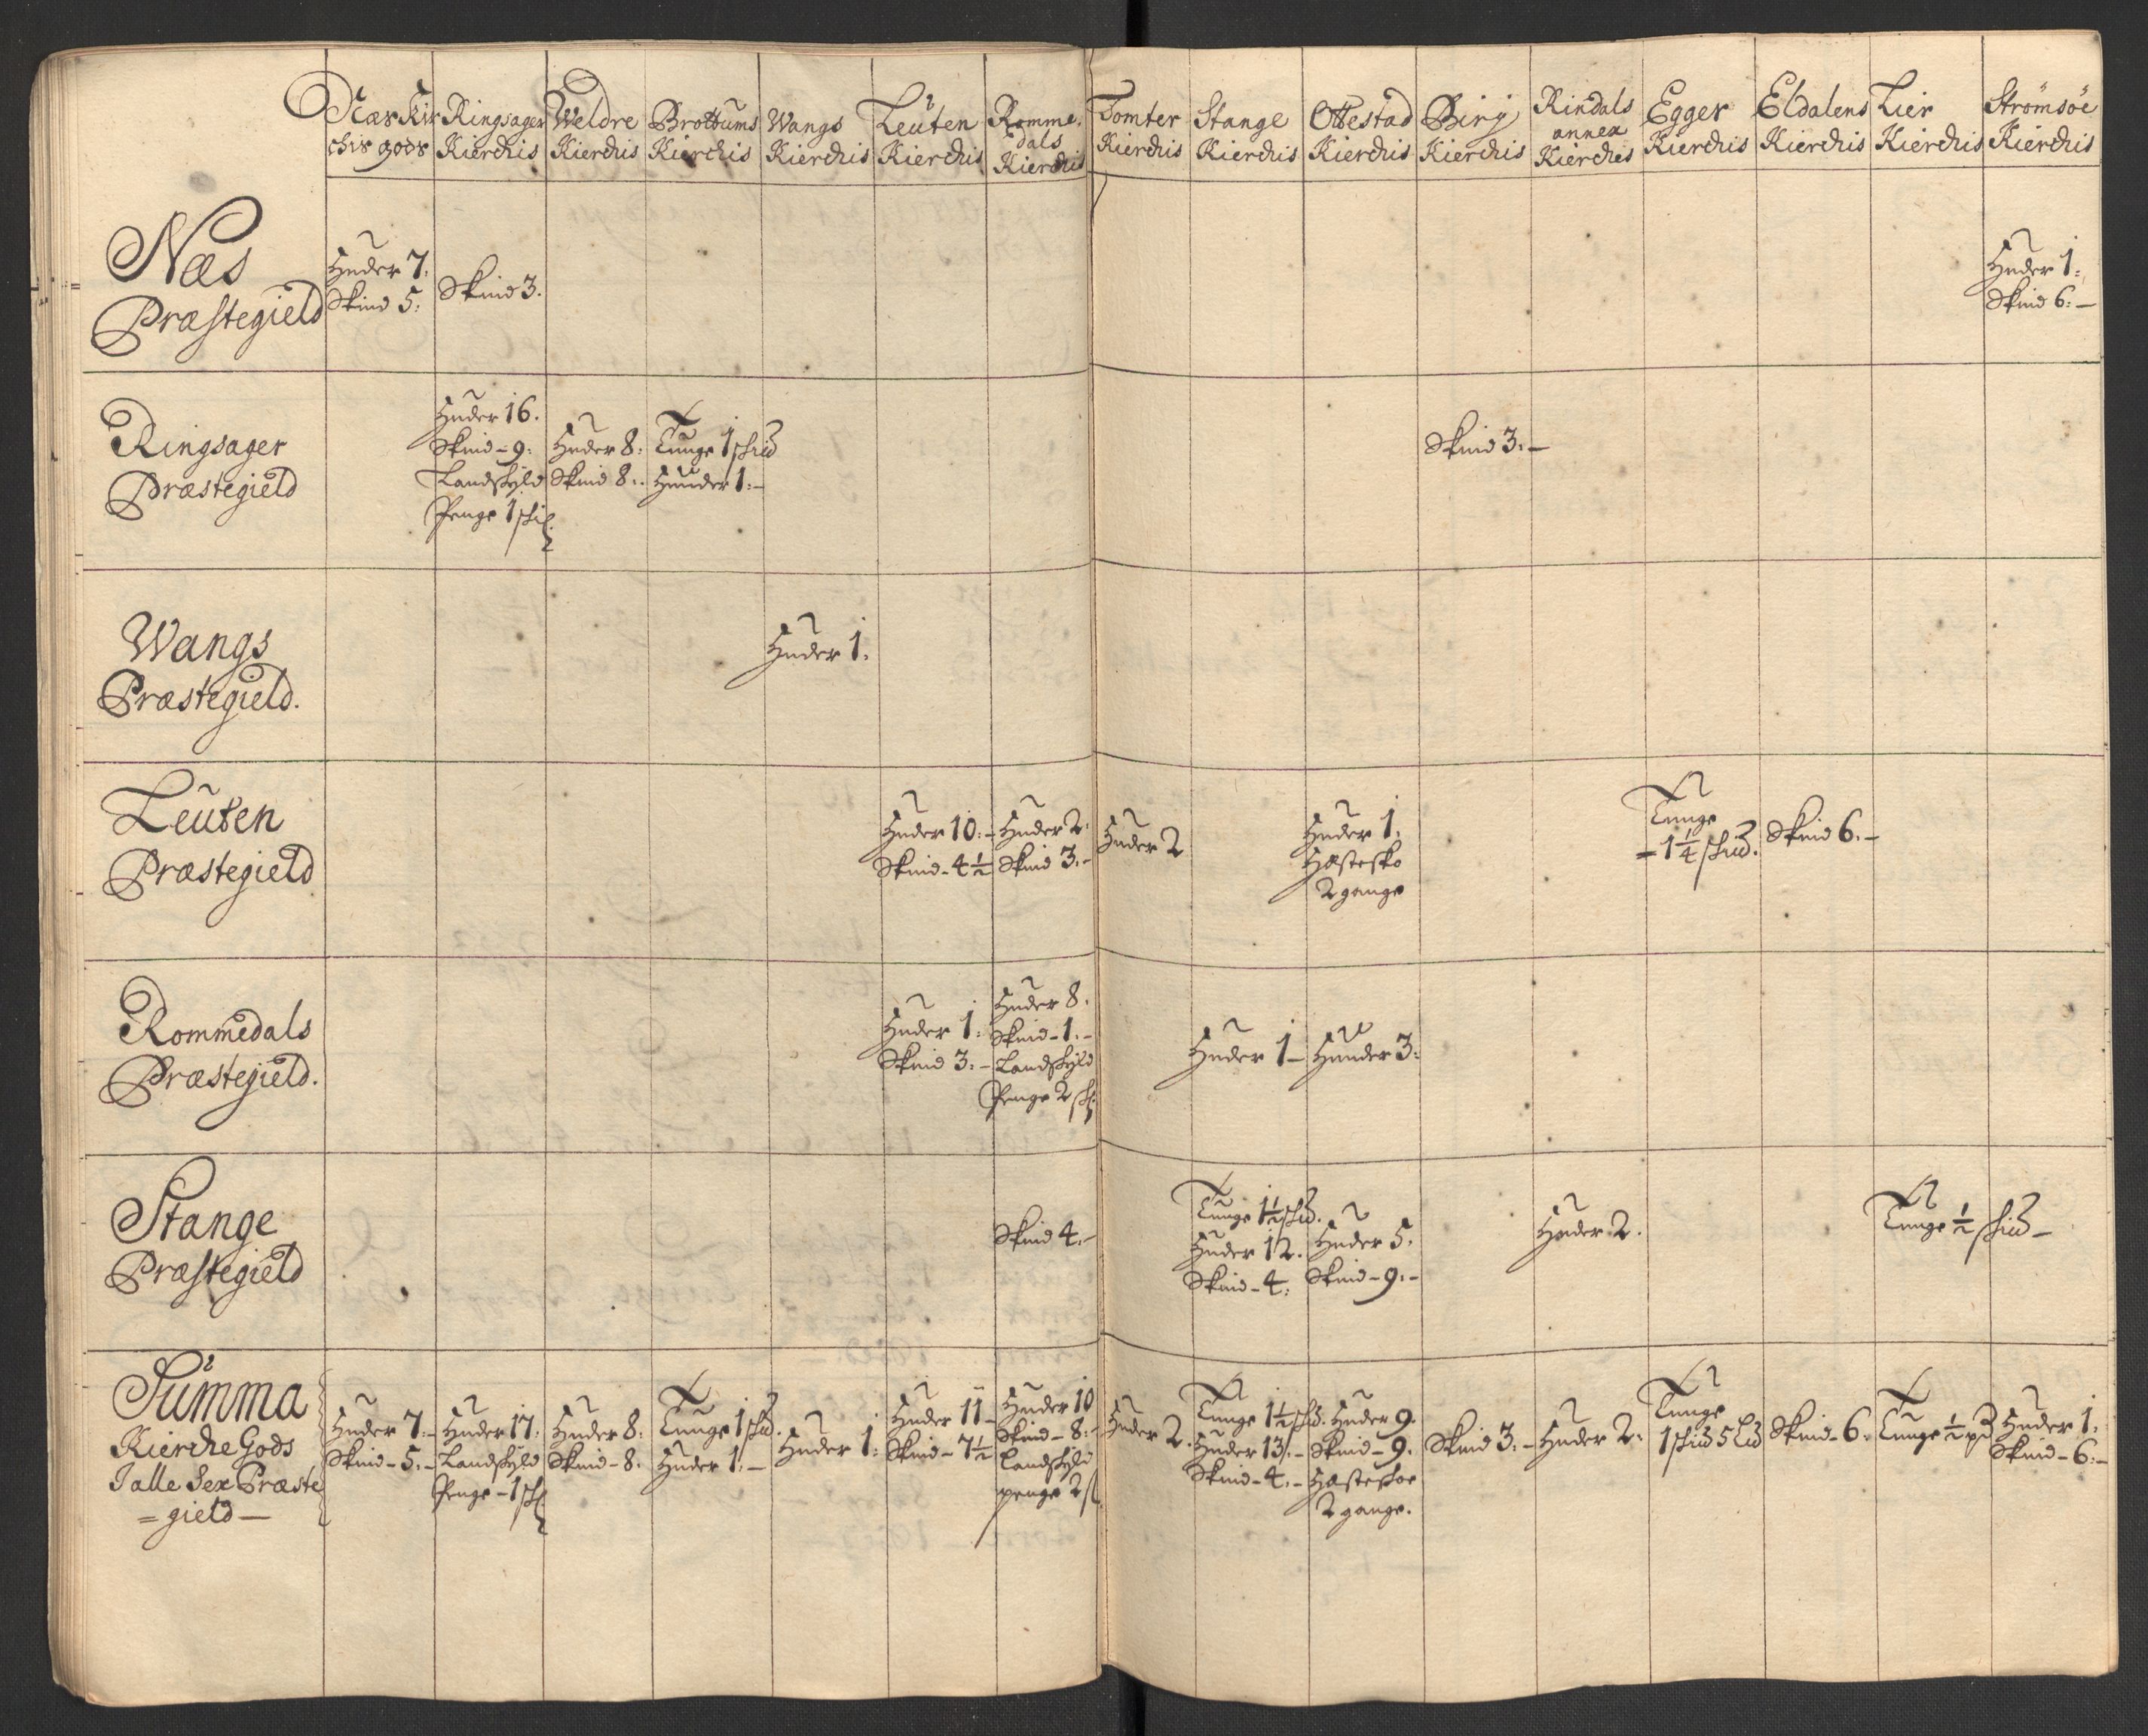 Næs Kir
chis gods
Ringsager
Kierchis
Weldre
Kierchis
Brottums
Kierchis
Wangs
Kierchis
Leuten
Kierchis
Romme
dals
Kierchis
Tomter
Kierchis
Stange
Kierchis
Ottestad
Kierchis
Birj
Kierchis
Rindals
annex
Kierches
Egger
Kierchis
Eldalens
Kierchis
Lier
Kierchis
Strømsøe
Kierchis
Næs
Præstegield
Huder 7.
Skind 5:
Skind 3.
Huder 1:
Skind 6:—
Ringsager
Præstegield
Huder 16.
Skind - 9:
Landskyld
Penge 1
Huder 8:
Skind 8:.
Tunge 1
Huuder 1:—
Skind 3:—
Wangs
Præstegield.
Huder 1:
Leuten
Præstegield
Huder 10:—
Skind - 4½
Huder 2:
Skind 3:-
Huder 2
Huder 1:
Hæstesko
2 gange
Tunge
=1¼
Skind 6:—
Rommedals
Præstegield.
Huder 1:
Skind 3:—
Huder 8:
Skind - 1:-
Landskyld
Penge 2
Huder 1—
Huuder 3:
Stange
Præstegield
Skind 4:-
Tunge 1½
Huder 12.
Skind - 4:
Huder 5:
Skind - 9:-
Huder 2.
Tunge ½
Summa
Kierche Gods
I alle Sex Præste
= gield —
Huder 7:-
Skind - 5:-
Huder 17:
Landskyld
Penge - 1
Huder 8:
Skind - 8:
Tunge 1
Huder 1:—
Huder 1:
Huder 11-
Skind - 7½
Huder 10
Skind - 8:-
Landskyld
penge 2
Huder 2.
Tunge 1½
Huder 13:-
Skind - 4:-
Huder 9.
Skind - 9:
Hæsteskoe
2 gange.
Skind 3:-
Huder 2:
Tunge
1
Skind - 6:
Tunge ½
Huder 1:
Skind - 6:—